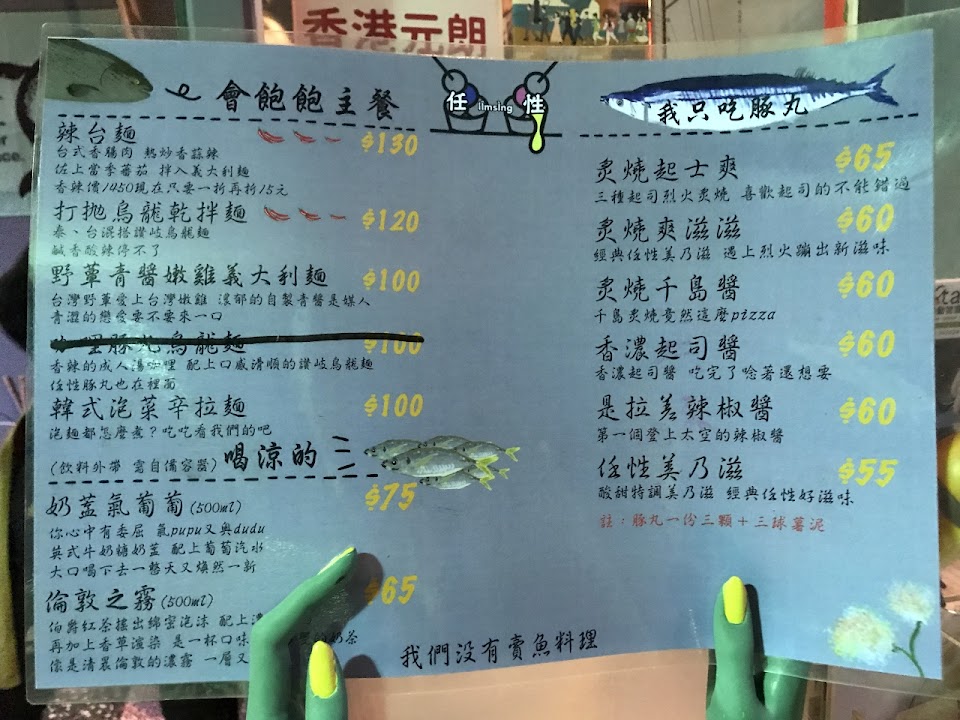 香港元朗
會飽飽主餐
任 ilmsing 性
辣台麵 $130
台式香腸肉 熱炒香蒜辣
佐上當季蕃茄 拌入義大利麵
香辣價1450現在只要一折再折15元
打拋烏龍乾拌麵 $120
泰、台混搭讚岐烏龍麵
鹹香酸辣停不了
野蕈青醬嫩雞義大利麵 $100
台灣野蕈愛上台灣嫩雞 濃郁的自製青醬是媒人
青澀的戀愛要不要來一口
咖哩豚丸烏龍麵 $100
香辣的成人湯咖哩 配上口感滑順的讚岐烏龍麵
任性豚丸也在裡面
韓式泡菜辛拉麵 $100
泡麵都怎麼煮?吃吃看我們的吧
(飲料外帶 需自備容器) 喝涼的
奶蓋氣葡葡(500ml) $75
你心中有委屈 氣pupu又奧dudu
英式牛奶糖奶蓋 配上葡萄汽水
大口喝下去一整天又煥然一新
倫敦之霧(500ml) $65
伯爵紅茶搖出綿密泡沫 配上濃
奶茶
再加上香草渲染 是一杯口味
像是清晨倫敦的濃霧 一層又
我只吃豚丸
炙燒起士爽 $65
三種起司烈火炙燒 喜歡起司的不能錯過
炙燒爽滋滋 $60
經典任性美乃滋 遇上烈火蹦出新滋味
炙燒千島醬 $60
千島炙燒竟然這麼pizza
香濃起司醬 $60
香濃起司醬 吃完了唸著還想要
是拉差辣椒醬 $60
第一個登上太空的辣椒醬
任性美乃滋 $55
酸甜特調美乃滋 經典任性好滋味
註:豚丸一份三顆+三球薯泥
我們沒有賣魚料理